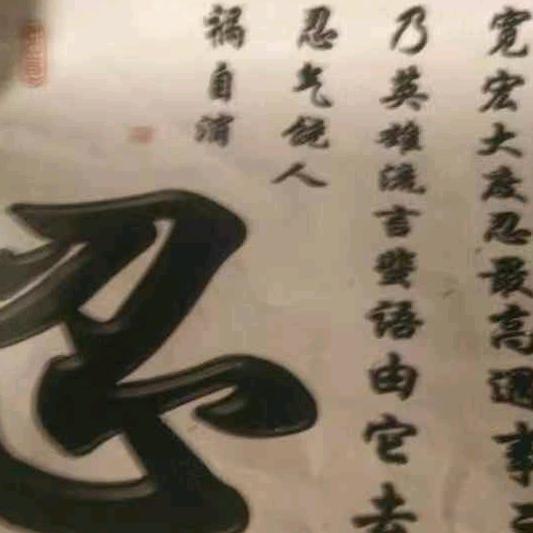 宽宏大度忍最高遇事
乃英雄流言蜚语由它去
忍气饶人
祸自消
忍